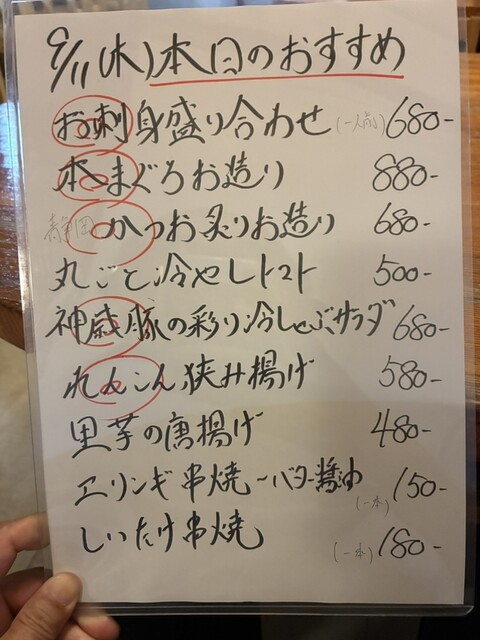 9/11(木)本日のおすすめ
お刺身盛り合わせ(一人前)680-
本まぐろお造り 880-
静岡 かつお炙りお造り 680-
丸ごと冷やしトマト 500-
神威豚の彩り冷しゃぶサラダ 680-
れんこん狭み揚げ 580-
里芋の唐揚げ 480-
エリンギ串焼~バター醤油(一本)150-
しいたけ串焼(一本)180-